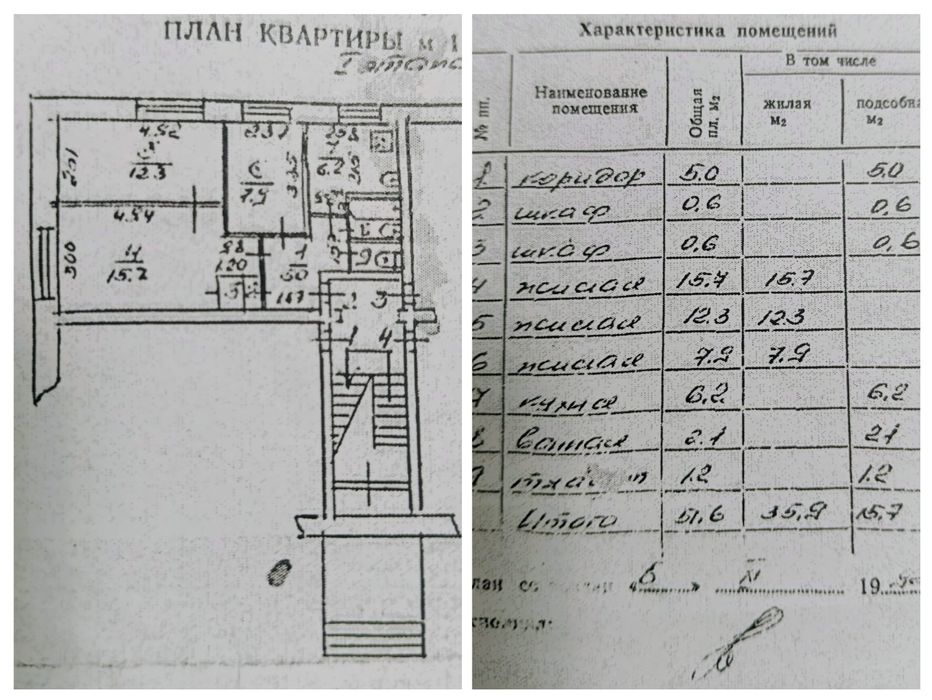 ПЛАН КВАРТИРЫ
4.52
2.37
12.3
7.9
6.2
4.54
300
15.7
98
1.20
5.0
167
2 3
1 4
Характеристика помещений
№ пп.
Наименование помещения
Общая пл. м2
В том числе
жилая м2
подсобна м2
1 коридор 5.0 5.0
2 шкаф 0,6 0,6
3 шкаф 0,6 0,6
4 жилая 15.7 15.7
5 жилая 12.3 12.3
6 жилая 7.9 7.9
7 кухня 6.2 6.2
8 ванная 2.1 2.1
9 1.2 1.2
Итого 51.6 35.9 15.7
лан со « 6 » XI 19